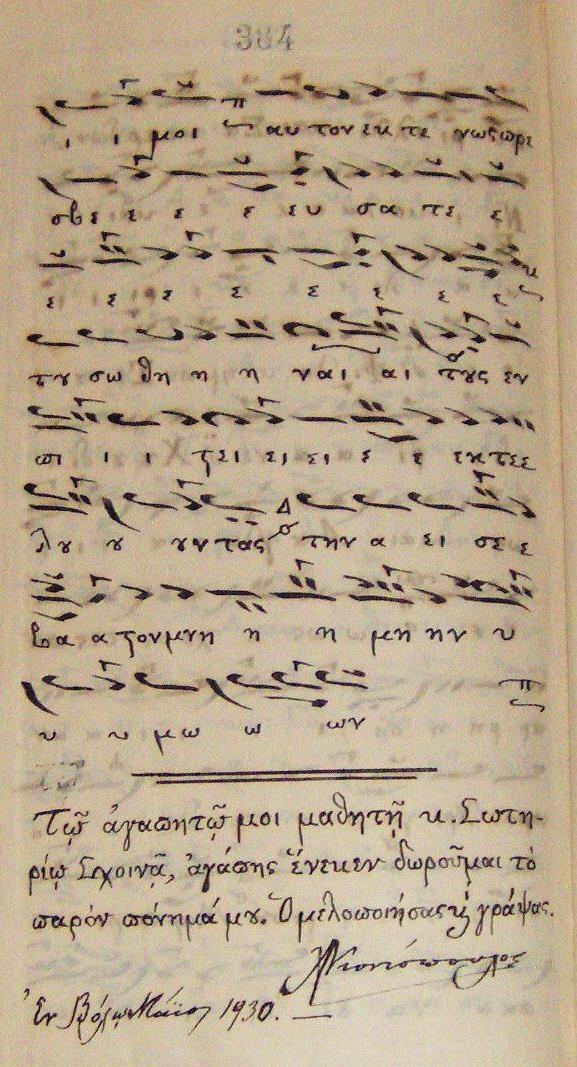 384
ι ι μοι αυ τον εκ τε νως πρε
σβε ε ε ε ευ σα τε ε
ε ε ε ε ε ε ε ε
τȣ σω θη η η ναι αι τȣς εν
πι ι ι ϛει ει ει ε ε εκ τεε
λȣ ȣ ȣν τας Δ την α ει σε ε
βα α ϛον μνη η η μη ην υ
υ υ μω ω ων
Τῷ ἀγαπητῷ μοι μαθητῇ κ. Σωτη-
ρίῳ Σχοινᾷ, ἀγάπης ἕνεκεν δωροῦμαι τὸ
παρόν πόνημά μȣ. Ὁ μελοποιήσας ϗ γράψας.
Ἐν Βόλῳ Μάϊος 1930.